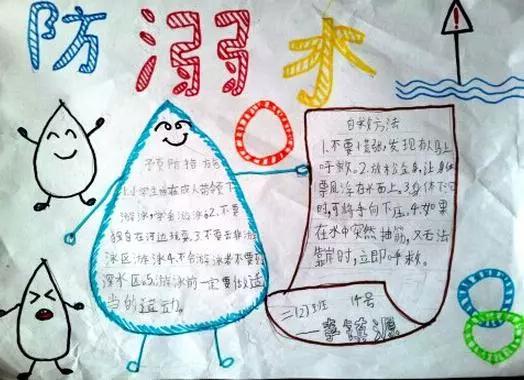 防溺水
预防措施
1.小学生应在成人带领下
游泳,学会游泳。2.不要
独自在河边玩耍。3.不要去非游
泳区游泳。4.不会游泳者不要到
深水区。5.游泳前一定要做适
当的运动。
自救方法
1.不要慌张,发现有人马上
呼救。2.放松全身,让身体
飘浮在水面上。3.身体下沉
时,可将手向下压。4.如果
在水中突然抽筋,又无法
靠岸时,立即呼救。
二(2)班 14号
李镇源